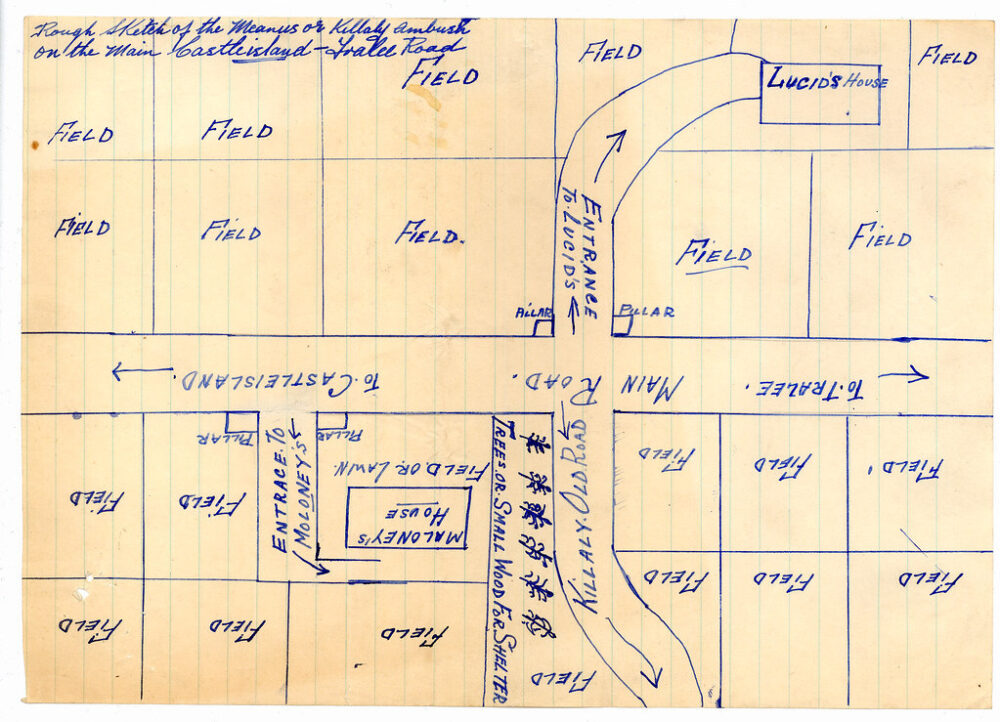 Rough Sketch of the Meanus or Killaly Ambush
on the Main Castleisland - Tralee Road
FIELD
FIELD
FIELD
LUCID'S HOUSE
FIELD
FIELD
FIELD
FIELD
FIELD.
ENTRANCE
TO LUCID'S
FIELD
FIELD
PILLAR
PILLAR
TO CASTLEISLAND.
MAIN ROAD.
TO TRALEE.
PILLAR
PILLAR
ENTRACE TO
MOLONEY'S
FIELD OR LAWN.
MALONEY'S
HOUSE
TREES OR SMALL WOOD FOR SHELTER
KILLALY OLD ROAD
FIELD
FIELD
FIELD
FIELD
FIELD
FIELD
FIELD
FIELD
FIELD
FIELD
FIELD
FIELD